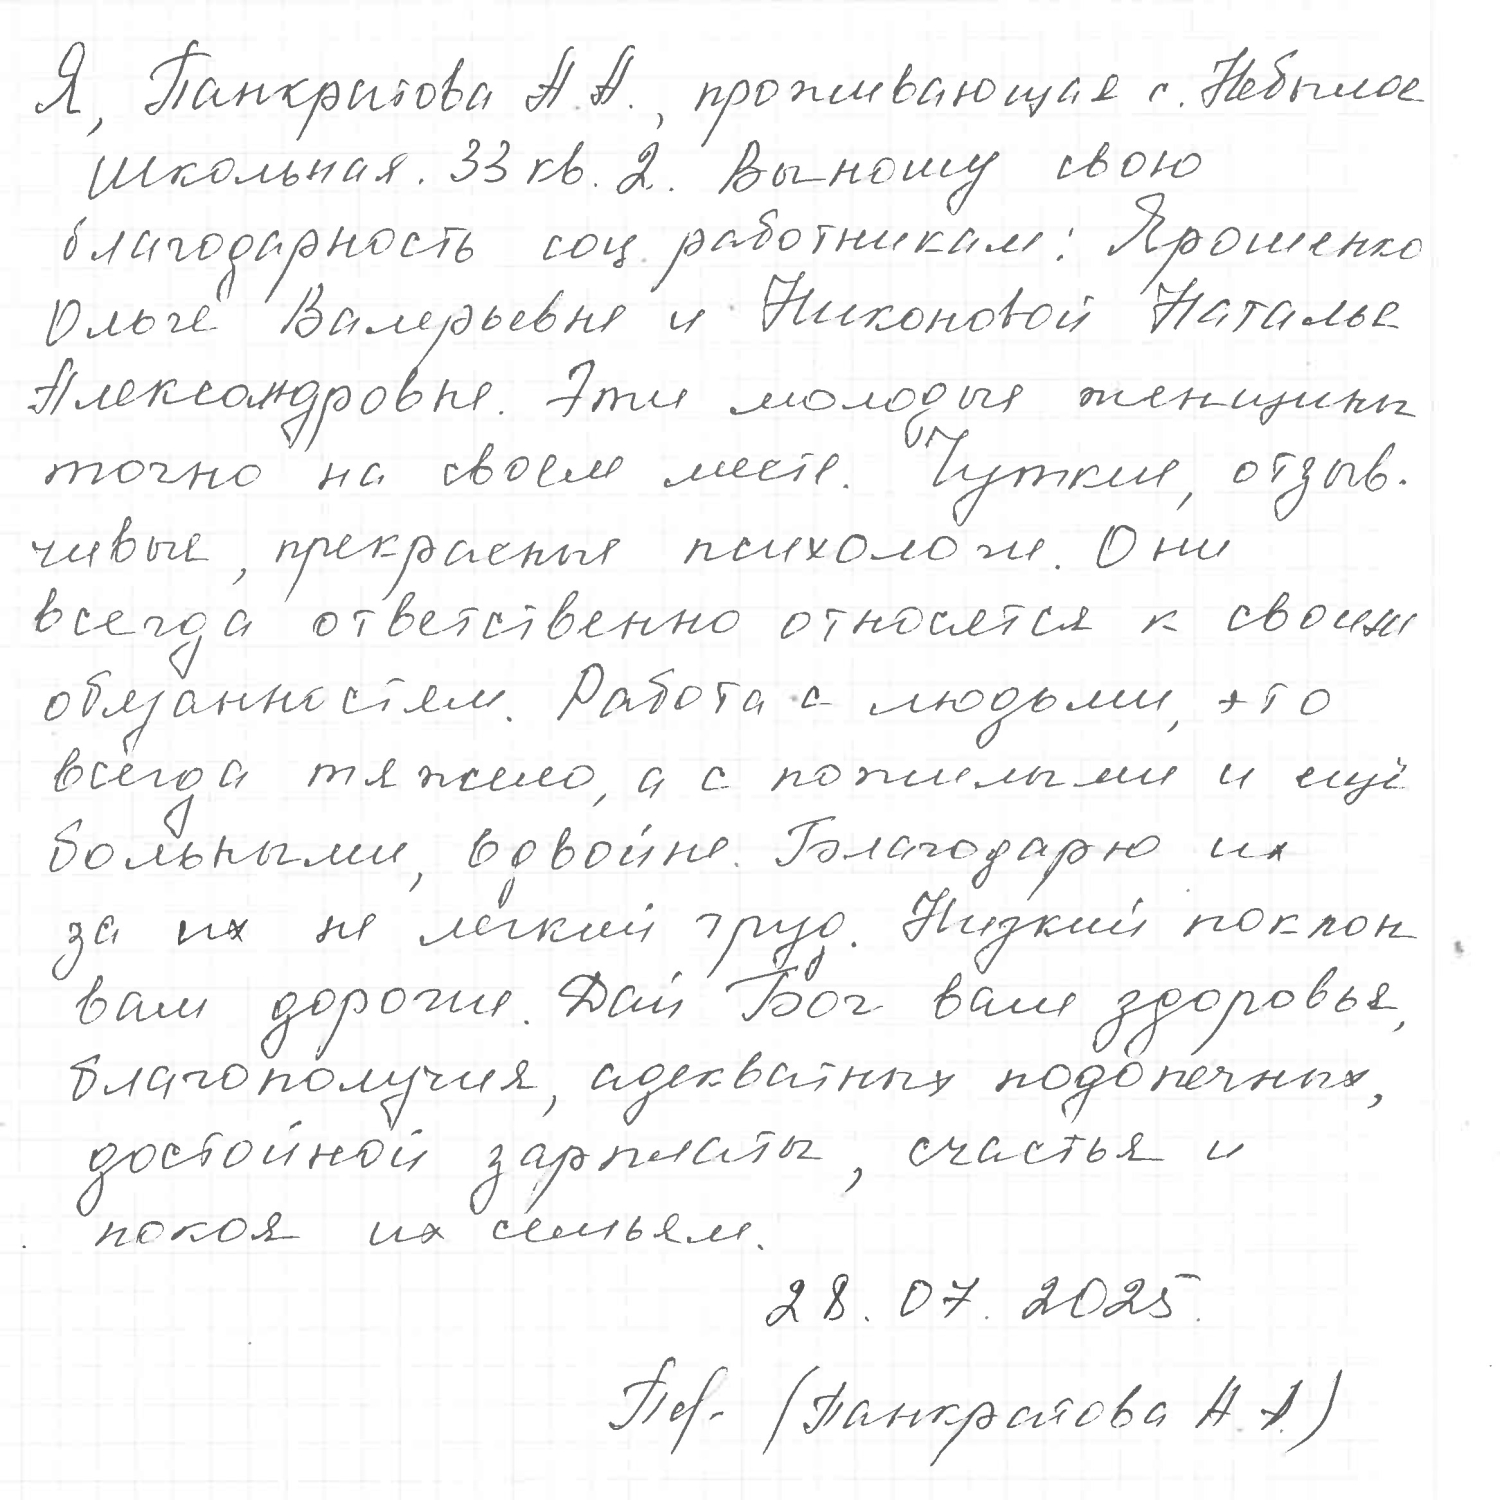 Я, Панкратова А.А., проживающая с. Небылое
Школьная. 33 кв. 2. Выношу свою
благодарность соц. работникам: Ярошенко
Ольге Валерьевне и Никоновой Наталье
Александровне. Эти молодые женщины
точно на своем месте. Чуткие, отзыв-
чивые, прекрасные психологи. Они
всегда ответственно относятся к своим
обязанностям. Работа с людьми, это
всегда тяжело, а с пожилыми и ещё
больными, вдвойне. Благодарю их
за их не легкий труд. Низкий поклон
вам дорогие. Дай Бог вам здоровья,
благополучия, адекватных подопечных,
достойной зарплаты, счастья и
покоя их семьям.
28.07.2025.
(Панкратова А.А.)